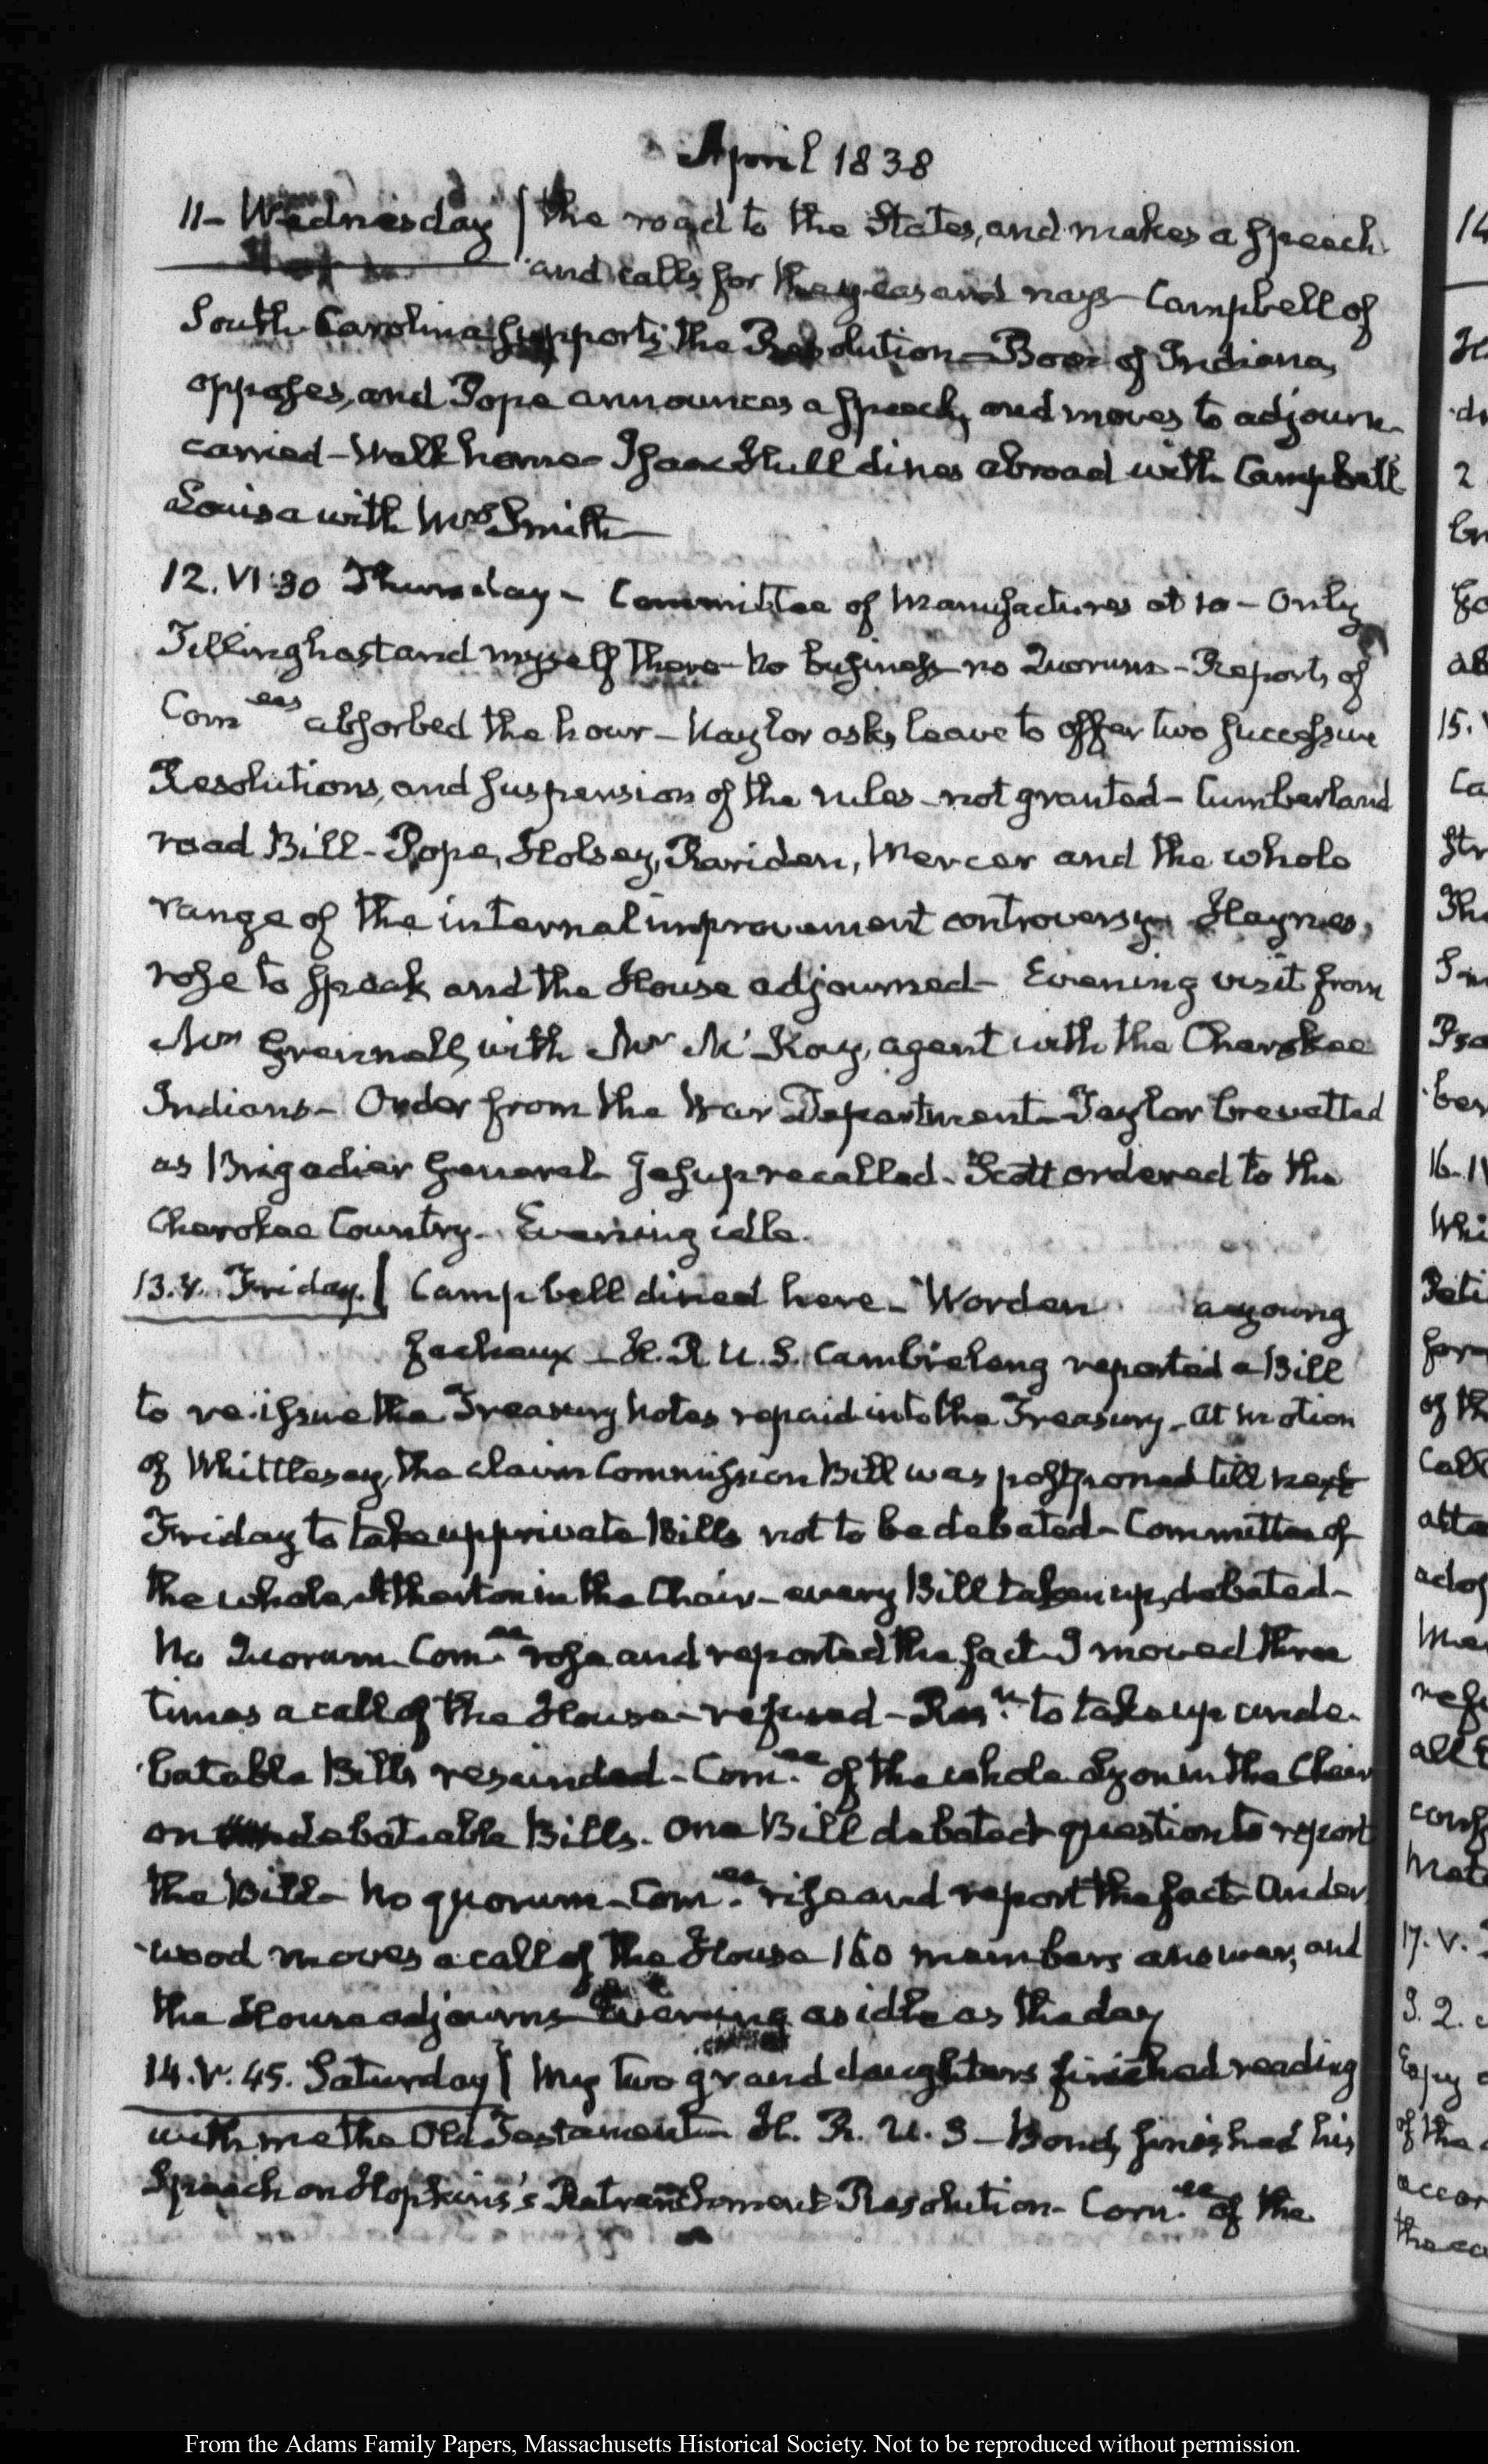 April 1838
11- Wednesday the road to the States, and makes a speech
and calls for the yeas and nays- Campbell of
South-Carolina supports the Resolution- Boon of Indiana,
opposes, and Pope announces a speech, and moves to adjourn-
carried- Walk home- Isaac Hull dines abroad with Campbell
Louisa with Mrs Smith-
12. VI:30 Thursday- Committee of Manufactures at 10- Only
Tillinghast and myself there- No business- no Quorum- Reports of
Comees absorbed the hour- Naylor asks leave to offer two successive
Resolutions, and suspension of the rules- not granted- Cumberland
road Bill- Pope, Holsey, Rariden, Mercer and the whole
range of the internal improvement controversy. Haynes,
rose to speak and the House adjourned- Evening visit from
Mr Grennell, with Mr McKay, agent with the Cherokee
Indians- Order from the War Department- Taylor brevetted
as Brigadier General- Jesup recalled- Scott ordered to the
Cherokee Country- Evening idle.
13. V. Friday. Campbell dined here- Worden a young
H.R.U.S. Cambreleng reported a Bill
to re-issue the Treasury Notes repaid into the Treasury- At motion
of Whittlesey, the claim Commission Bill was postponed till next
Friday to take up private Bills not to be debated- Committee of
the whole, Atherton in the Chair- every Bill taken up, debated-
No Quorum- Com.ee rose and reported the fact- I moved three
times a call of the House- refused- Res.n to take up unde-
batable Bills rescinded- Com.ee of the whole Lyon in the Chair
on debateable Bills. One Bill debated- question to report
the Bill- No quorum- Com.ee rise and report the fact- Under
wood moves a call of the House 160 members answer, and
the House adjourns- Evening as idle as the day
14. V. 45. Saturday My two grand daughters finished reading
with me the Old Testament- H. R. U. S- Bond, finished his
Speech on Hopkins's Retrenchment Resolution- Com.ee of the
From the Adams Family Papers, Massachusetts Historical Society. Not to be reproduced without permission.